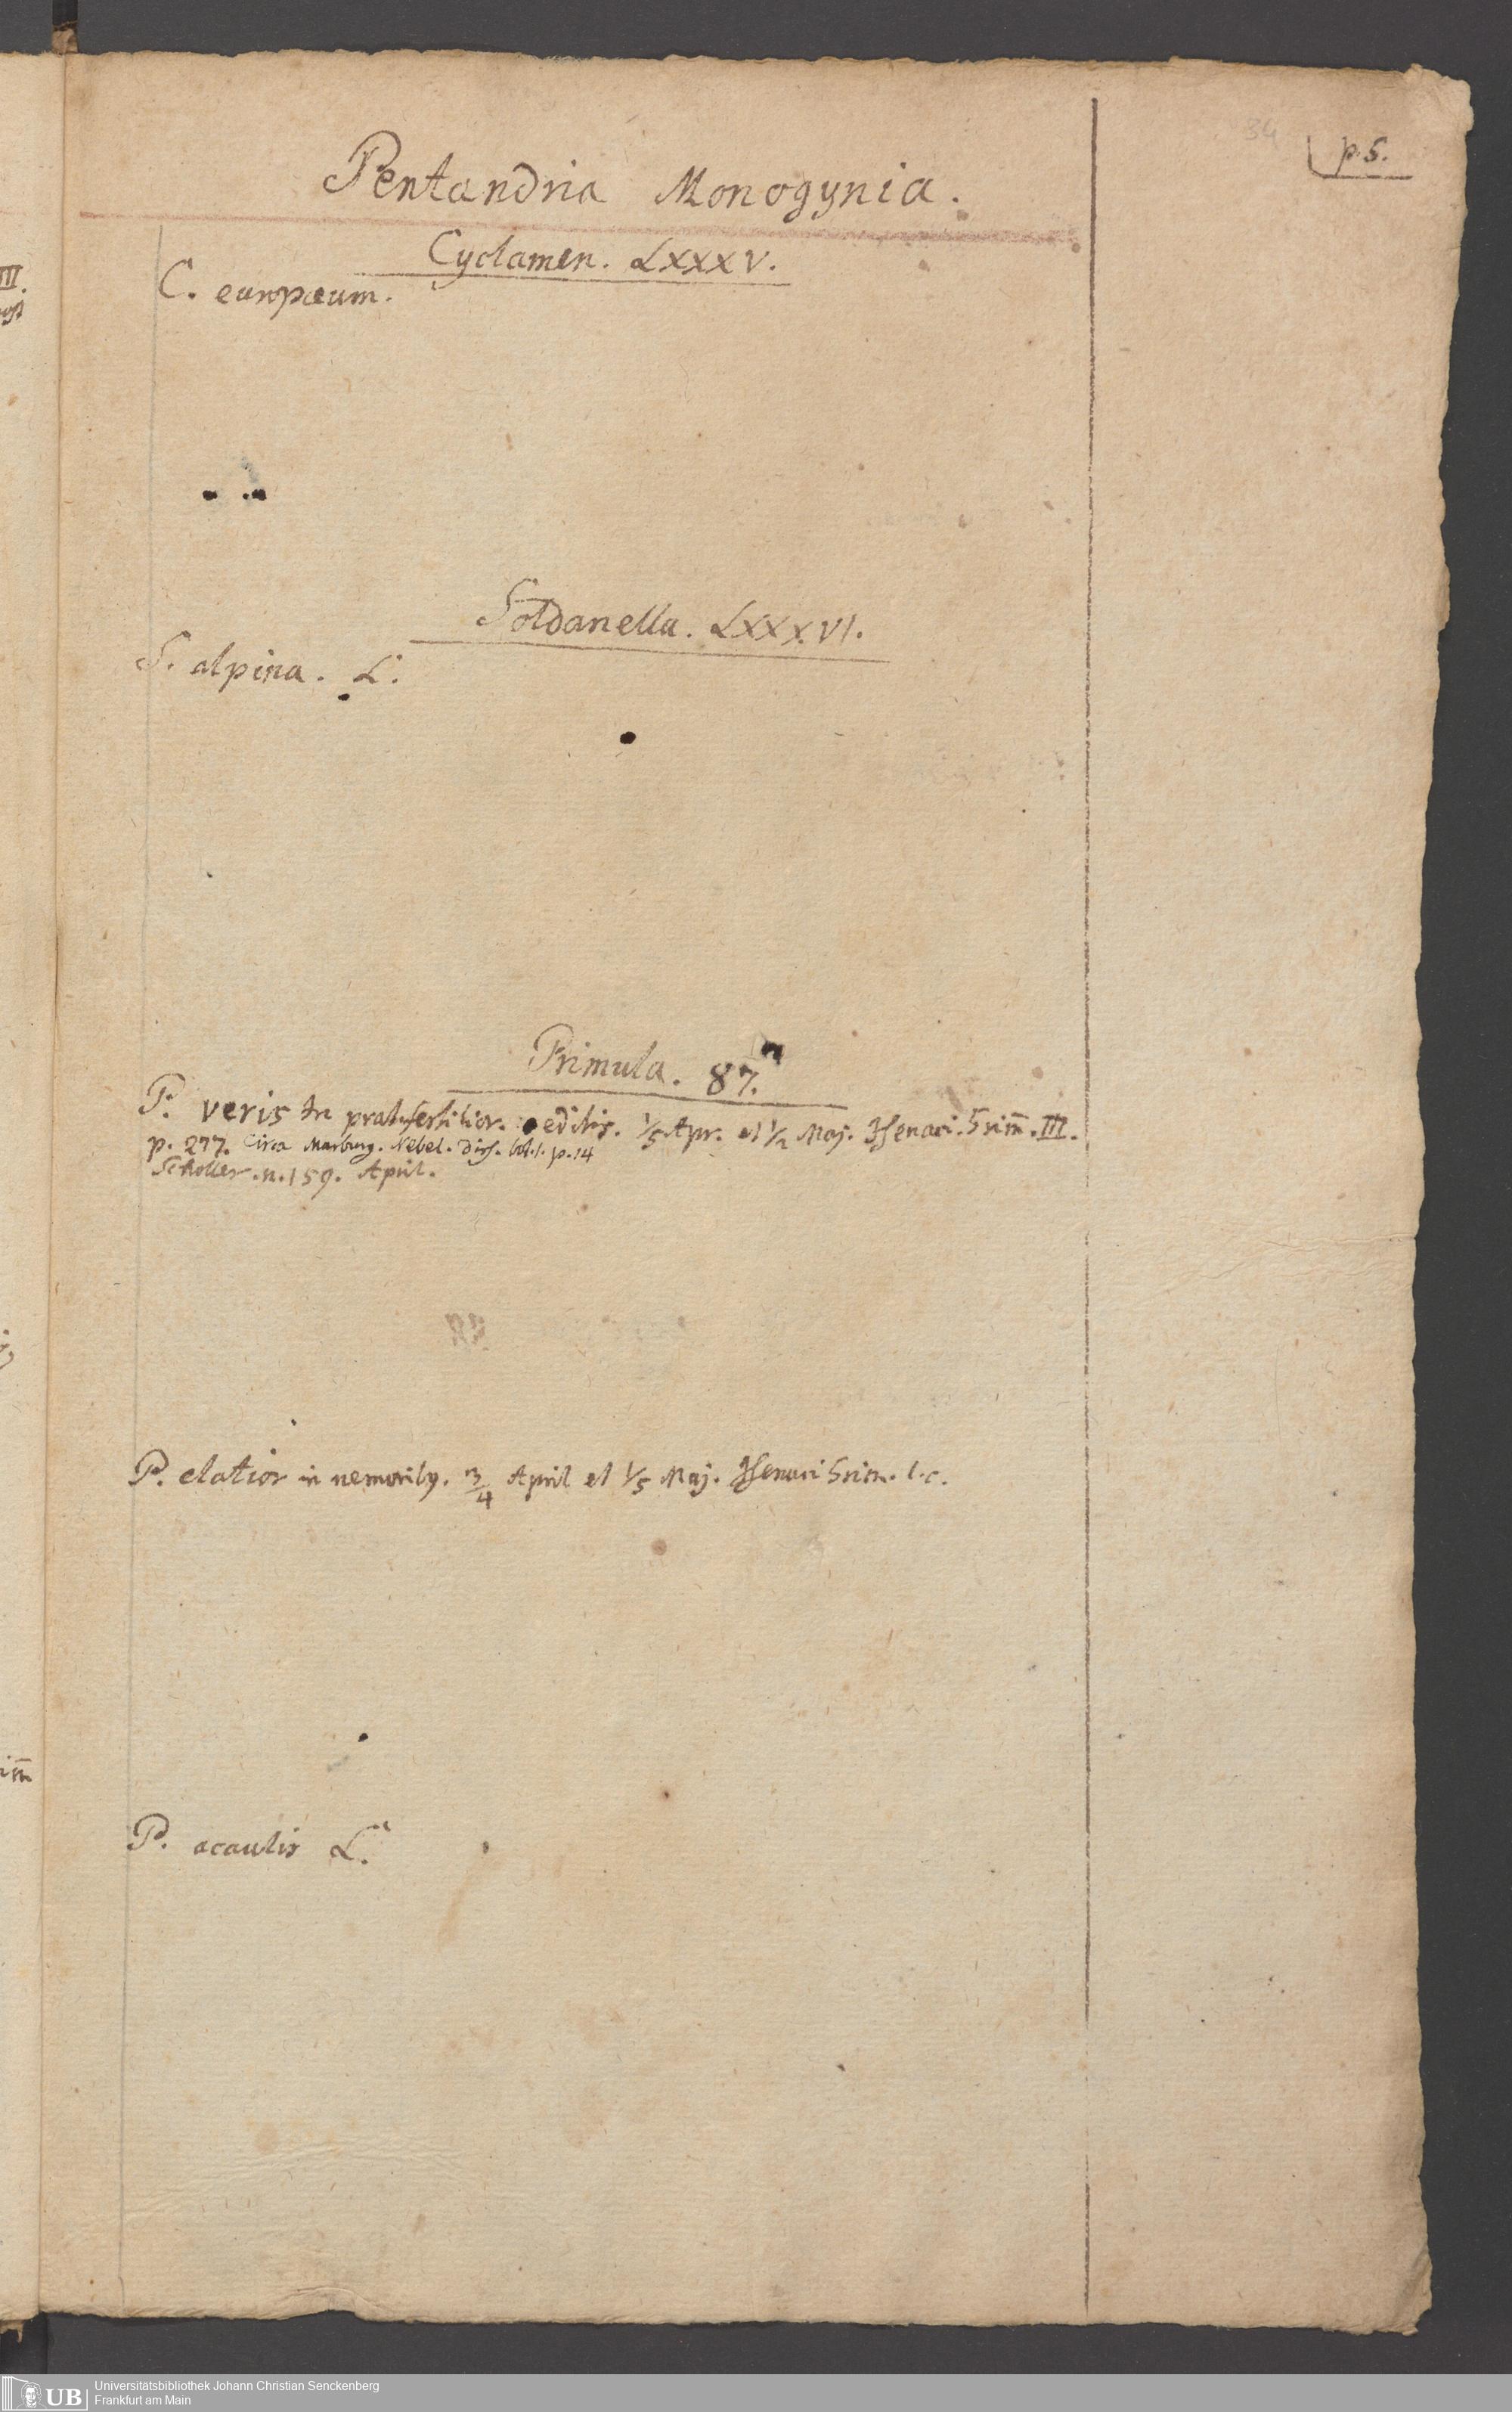 34
p. 5.
Pentandria Monogynia.
Cyclamen. LXXXV.
C. europæum.
Soldanella. LXXXVI.
S. alpina. L.
Primula. 87.
P. veris In editis. 1/5 Apr. et 1/2 Maj. Isenaci. Grim̄. III.
p. 277. Circa Marburg. Nebel. Diss. bot. 1. p. 14
Scholler. n. 159. April.
P. elatior in nemoribq. 3/4 April et 1/5 Maj. Isenaci Grim. l. c.
P. acaulis L.
UB
Universitätsbibliothek Johann Christian Senckenberg
Frankfurt am Main